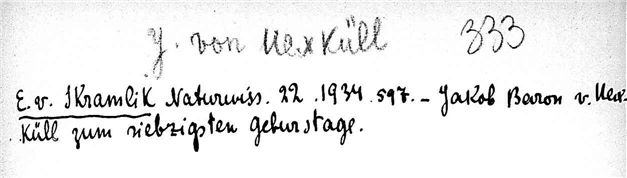 J. von Uexküll 333
E. v. Skramlik Naturwiss. 22. 1934. 597. – Jakob Baron v. Uex-
küll zum siebzigsten Geburstage.